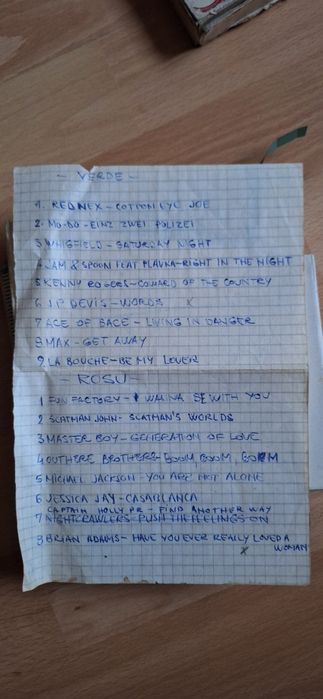 - VERDE -
1. REDNEX - COTTON EYE JOE
2. MO-DO - EINZ ZWEI POLIZEI
3 WHIGFIELD - SATURDAY NIGHT
4 JAM & SPOON FEAT PLAVKA - RIGHT IN THE NIGHT
5 KENNY ROGERS - COWARD OF THE COUNTRY
6. J.P. DEVIS - WORDS X
7 ACE OF BACE - LIVING IN DANGER
8 MAX - GET AWAY
9. LA BOUCHE - BE MY LOVER
- ROSU -
1 FUN FACTORY - I WANNA BE WITH YOU
2 SCATMAN JOHN - SCATMAN'S WORLDS
3 MASTER BOY - GENERATION OF LOVE
4 OUTHERE BROTHERS - BOOM, BOOM, BOOM
5 MICHAEL JACKSON - YOU ARE NOT ALONE
6 JESSICA JAY - CASABLANCA
CAPTAIN HOLLY PR - FIND ANOTHER WAY
7 NIGHTCRAWLERS - PUSH THE FEELINGS ON
8 BRIAN ADAMS - HAVE YOU EVER REALLY LOVED A
X WOMAN